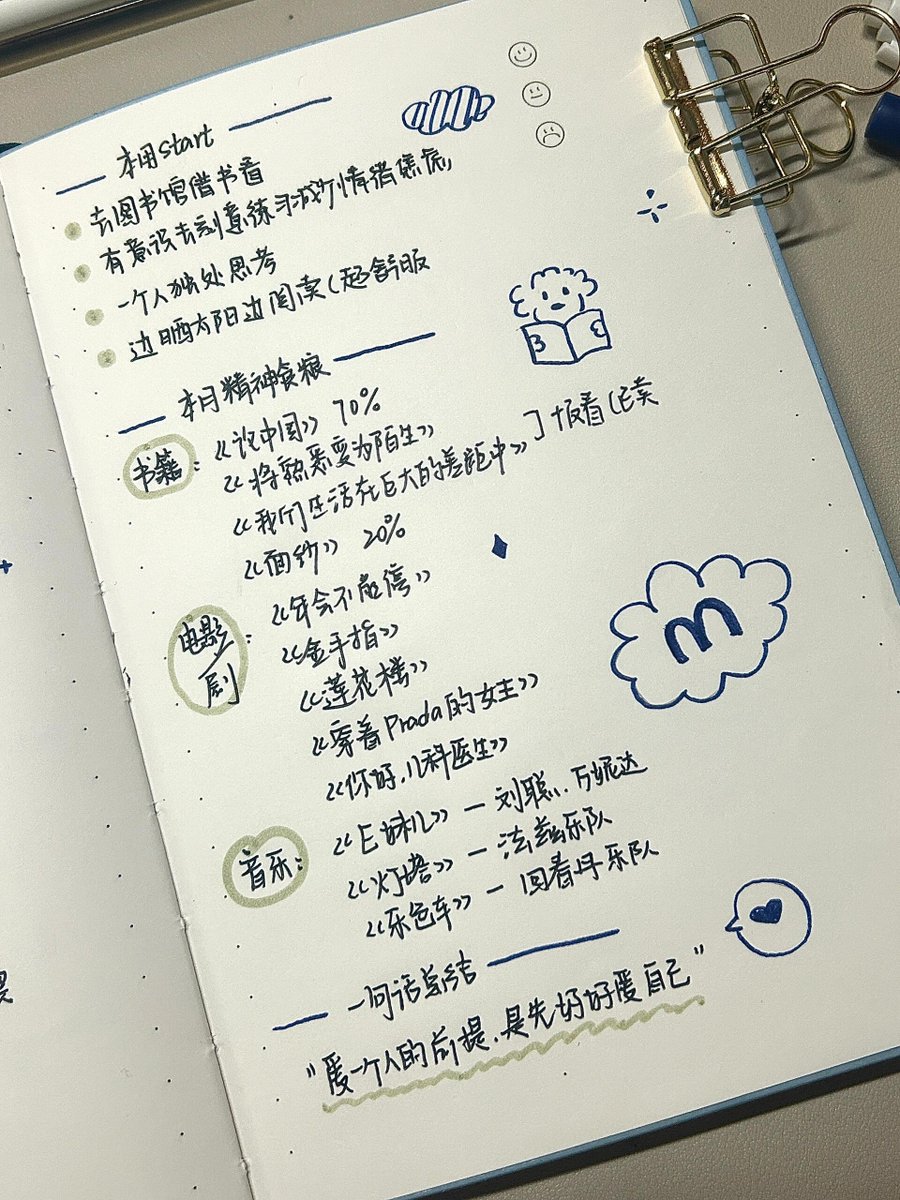 本月start
去图书馆借书看
有意识去刻意练习减少情绪焦虑
一个人独处思考
边晒太阳边阅读(超舒服
本月精神食粮
书籍:《说中国》 70%
《将熟悉变为陌生》
《我们生活在巨大的差距中》] 在看(已卖
《面纱》 20%
电影/剧:《年会不能停》
《金手指》
《莲花楼》
《穿着Prada的女王》
《你好,儿科医生》
音乐:《E妹儿》—刘聪、万妮达
《灯塔》—法兹乐队
《乐色车》—回春丹乐队
一句话总结
"爱一个人的前提,是先好好爱自己"
m
3 3